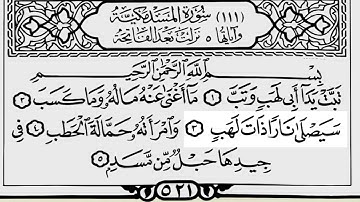 (١١١) سُورَةُ الْمَسَدِ مَكِّيَّةٌ
وَآيَاتُهَا ٥ نَزَلَتْ بَعْدَ الْفَاتِحَةِ
بِسْمِ اللَّهِ الرَّحْمَٰنِ الرَّحِيمِ
تَبَّتْ يَدَا أَبِي لَهَبٍ وَتَبَّ ١ مَا أَغْنَىٰ عَنْهُ مَالُهُ وَمَا كَسَبَ ٢
سَيَصْلَىٰ نَارًا ذَاتَ لَهَبٍ ٣ وَامْرَأَتُهُ حَمَّالَةَ الْحَطَبِ ٤ فِي
جِيدِهَا حَبْلٌ مِّن مَّسَدٍ ٥
٥٢١